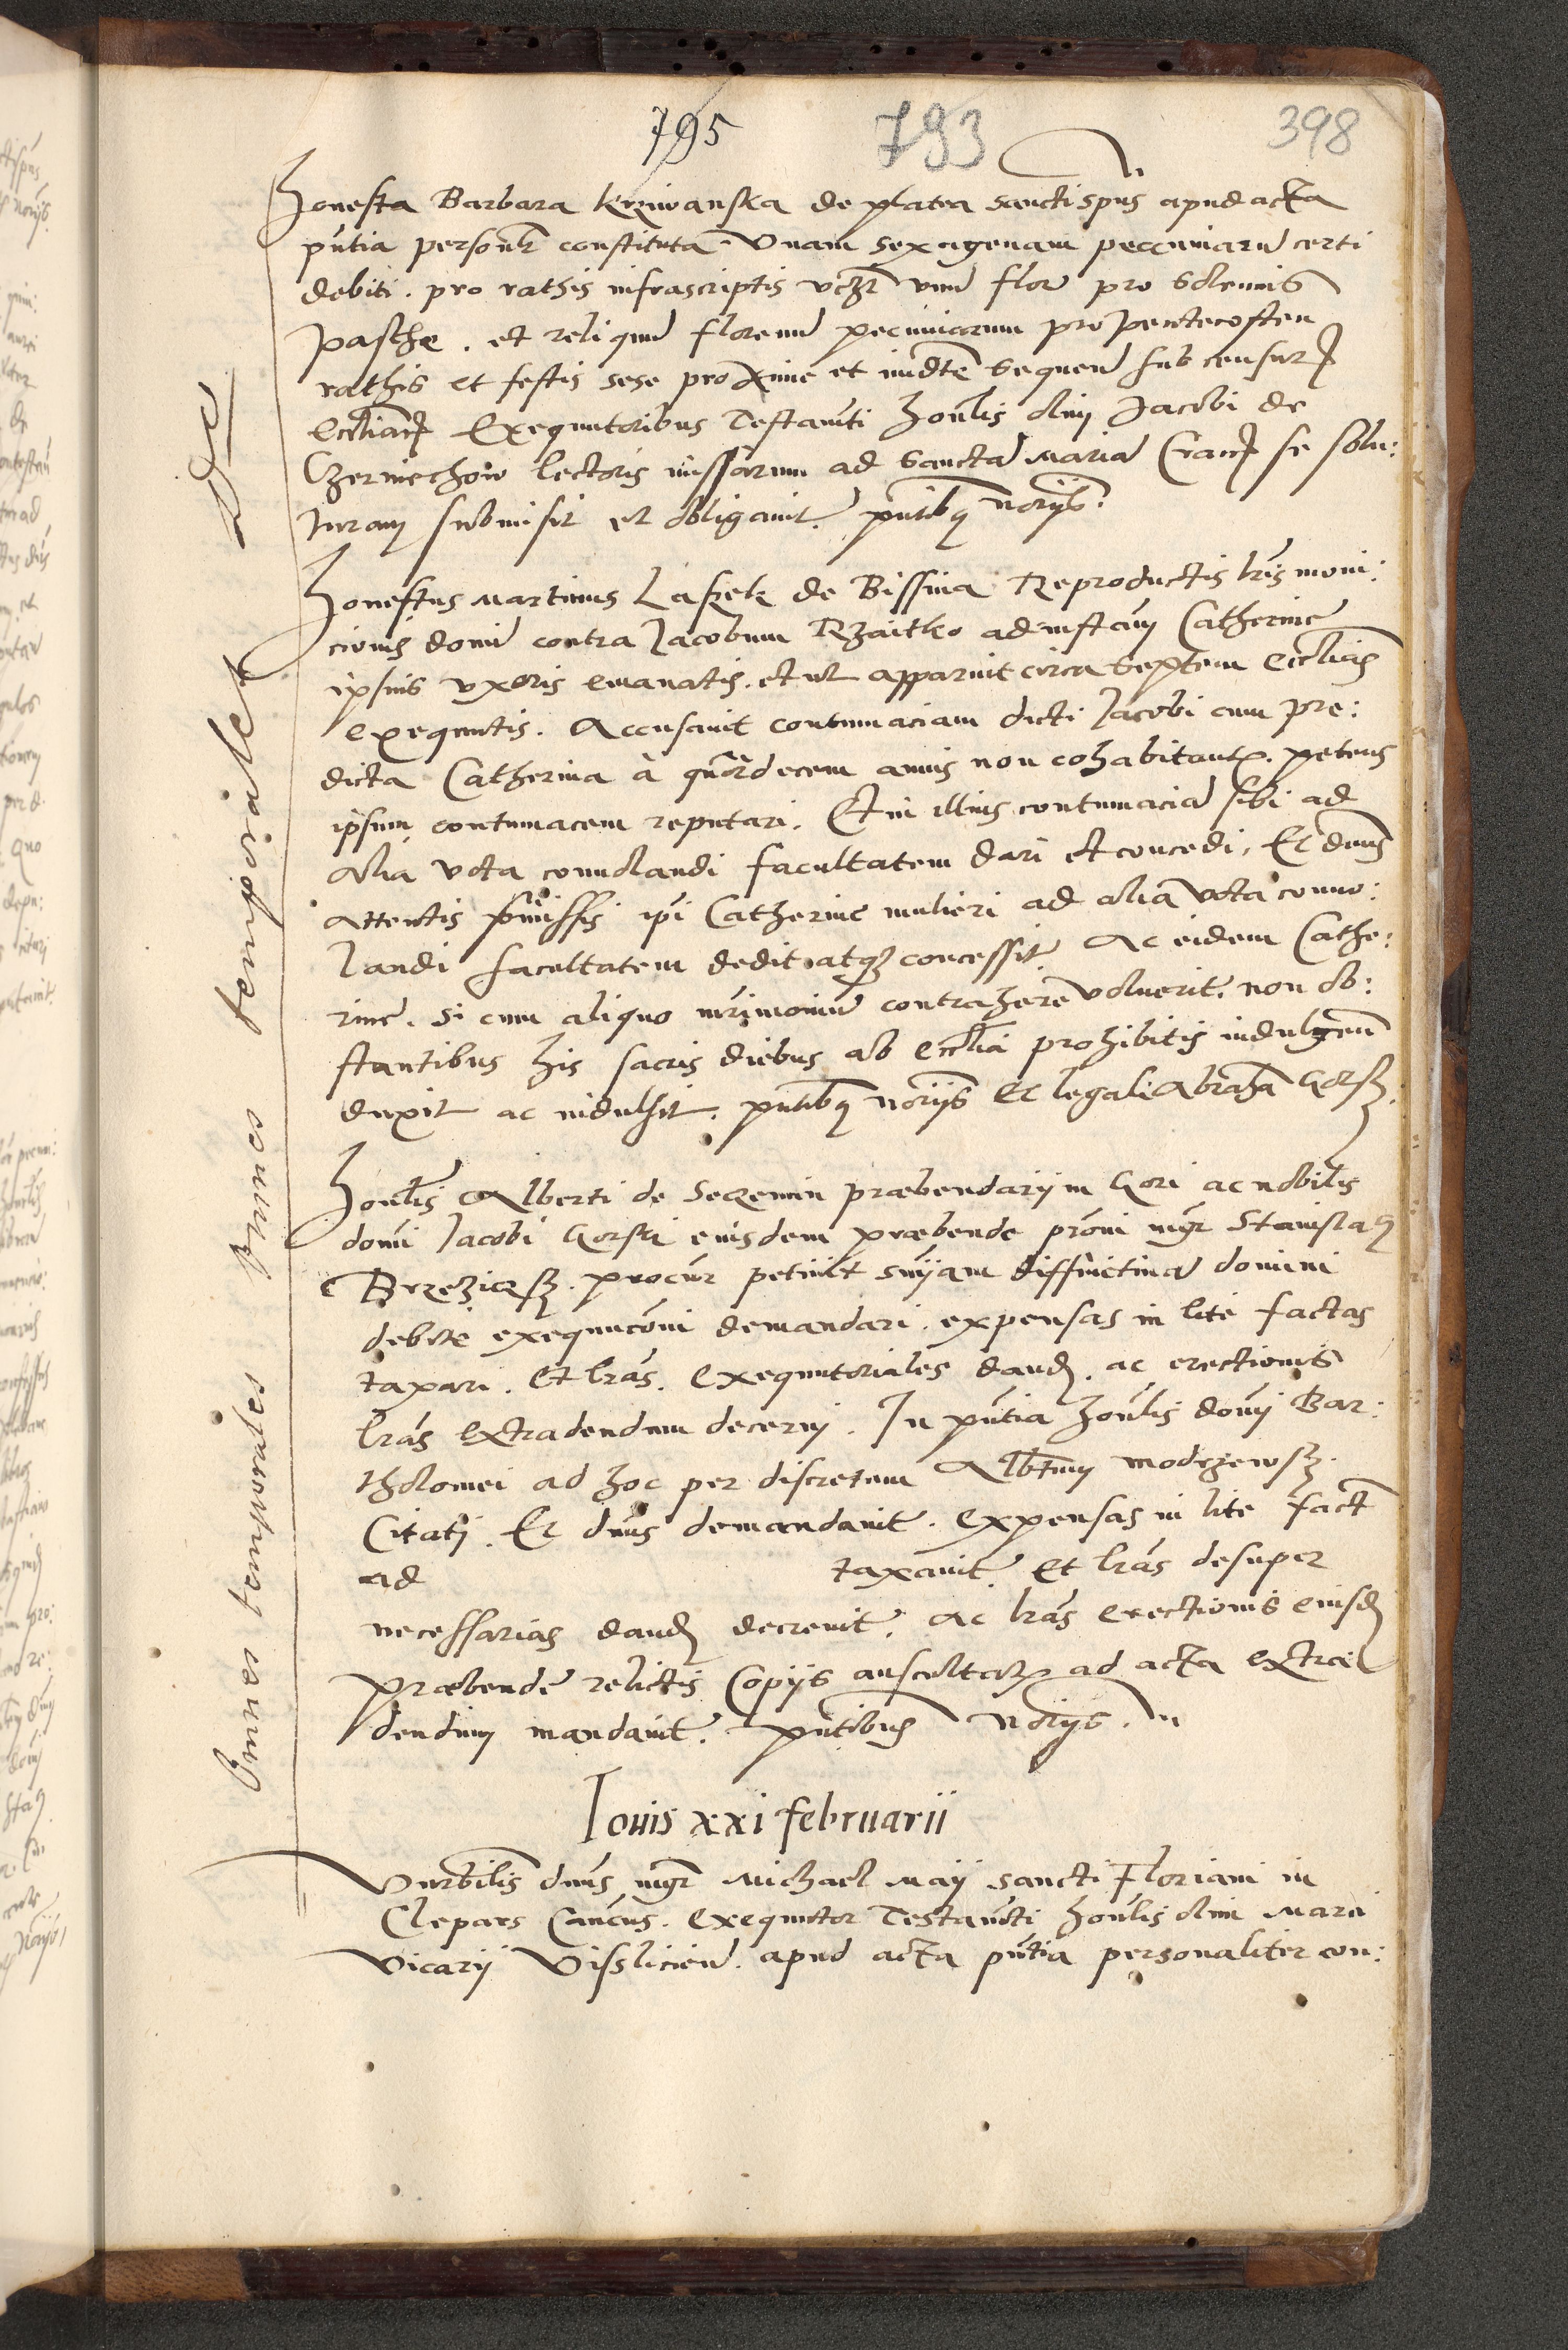 795 793 398
Honesta Barbara krziwanska de platea sanctispūs apud acta
pūtia personlr constituta. Vnam sexagenam peccuniarū certi
debiti. pro rathis infrascriptis vczr vnū flor pro solennis
pasche. et reliquū florenū pecuniarum pro pentecosten
rathis et festis sese proxime et imdte sequen sub censur
ecclian Exequutoribus Testamti honlis olim Jacobi de
Czerniechow lectoris missarum ad Sanctā Mariā Crac se solu:
turam submisit et obligauit. pntibq noriis.
Honestus Martinus Laszek de Bissina Reproductis lris moni:
cionis domi contra Jacobum Rzaitko ad instām Catherine
ipsius vxoris emanatis. et ut apparuit circa septem ecclias
exequutis. Accusauit contumaciam dicti Jacobi cum pre:
dicta Catherina à quordecem annis non cohabitant. petens
ipsum contumacem reputari. Et in illius contumaciā sibi ad
alia vota conuolandi facultatem dari et concedi. Et dnus
attentis pmissis ipi Catherine mulieri ad alia vota conuo:
landi facultatem dedit atqz concessit Ac eidem Cathe:
rine. Si cum aliquo mrimoniu contrahere voluerit. non ob:
stantibus his sacris diebus ab ecclia prohibitis indulgen
duxit ac indulsit. pntibq noriis et legali Abrahā Gorsz.
Honlis Alberti de Seczemin præbendarij in Gori ac nobilis
domi Jacobi Gorski eiusdem præbende proni mgr Stanislaq
Brzezicsz. procur petiuit snijam diffinitiuā domini
debite exequucōni demandari. expensas in lite factas
taxari. et lras. Exequutoriales dand. ac erectionis
lras extradendum decerni. In pntia honlis domj Bar:
tholomei ad hoc per discretum Albtum modrzewsz.
Citati. Et dnus demandauit. expensas in lite fact
ad taxauit. et lras desuper
necessarias dand decreuit. ac lras erectionis eiusd
præbende relictis Copijs auscultat ad acta extra
dendum mandauit. pntibus noriis.
Iouis xxi februarii
Vnrbilis dnus mgr Michael Maij sancti Floriani in
Clepars Cancus. exequutor Testamti honlis olim Marci
vicarij Vissliciēn. apud acta pntia personaliter con:
Omnes temporales Omnes temporales